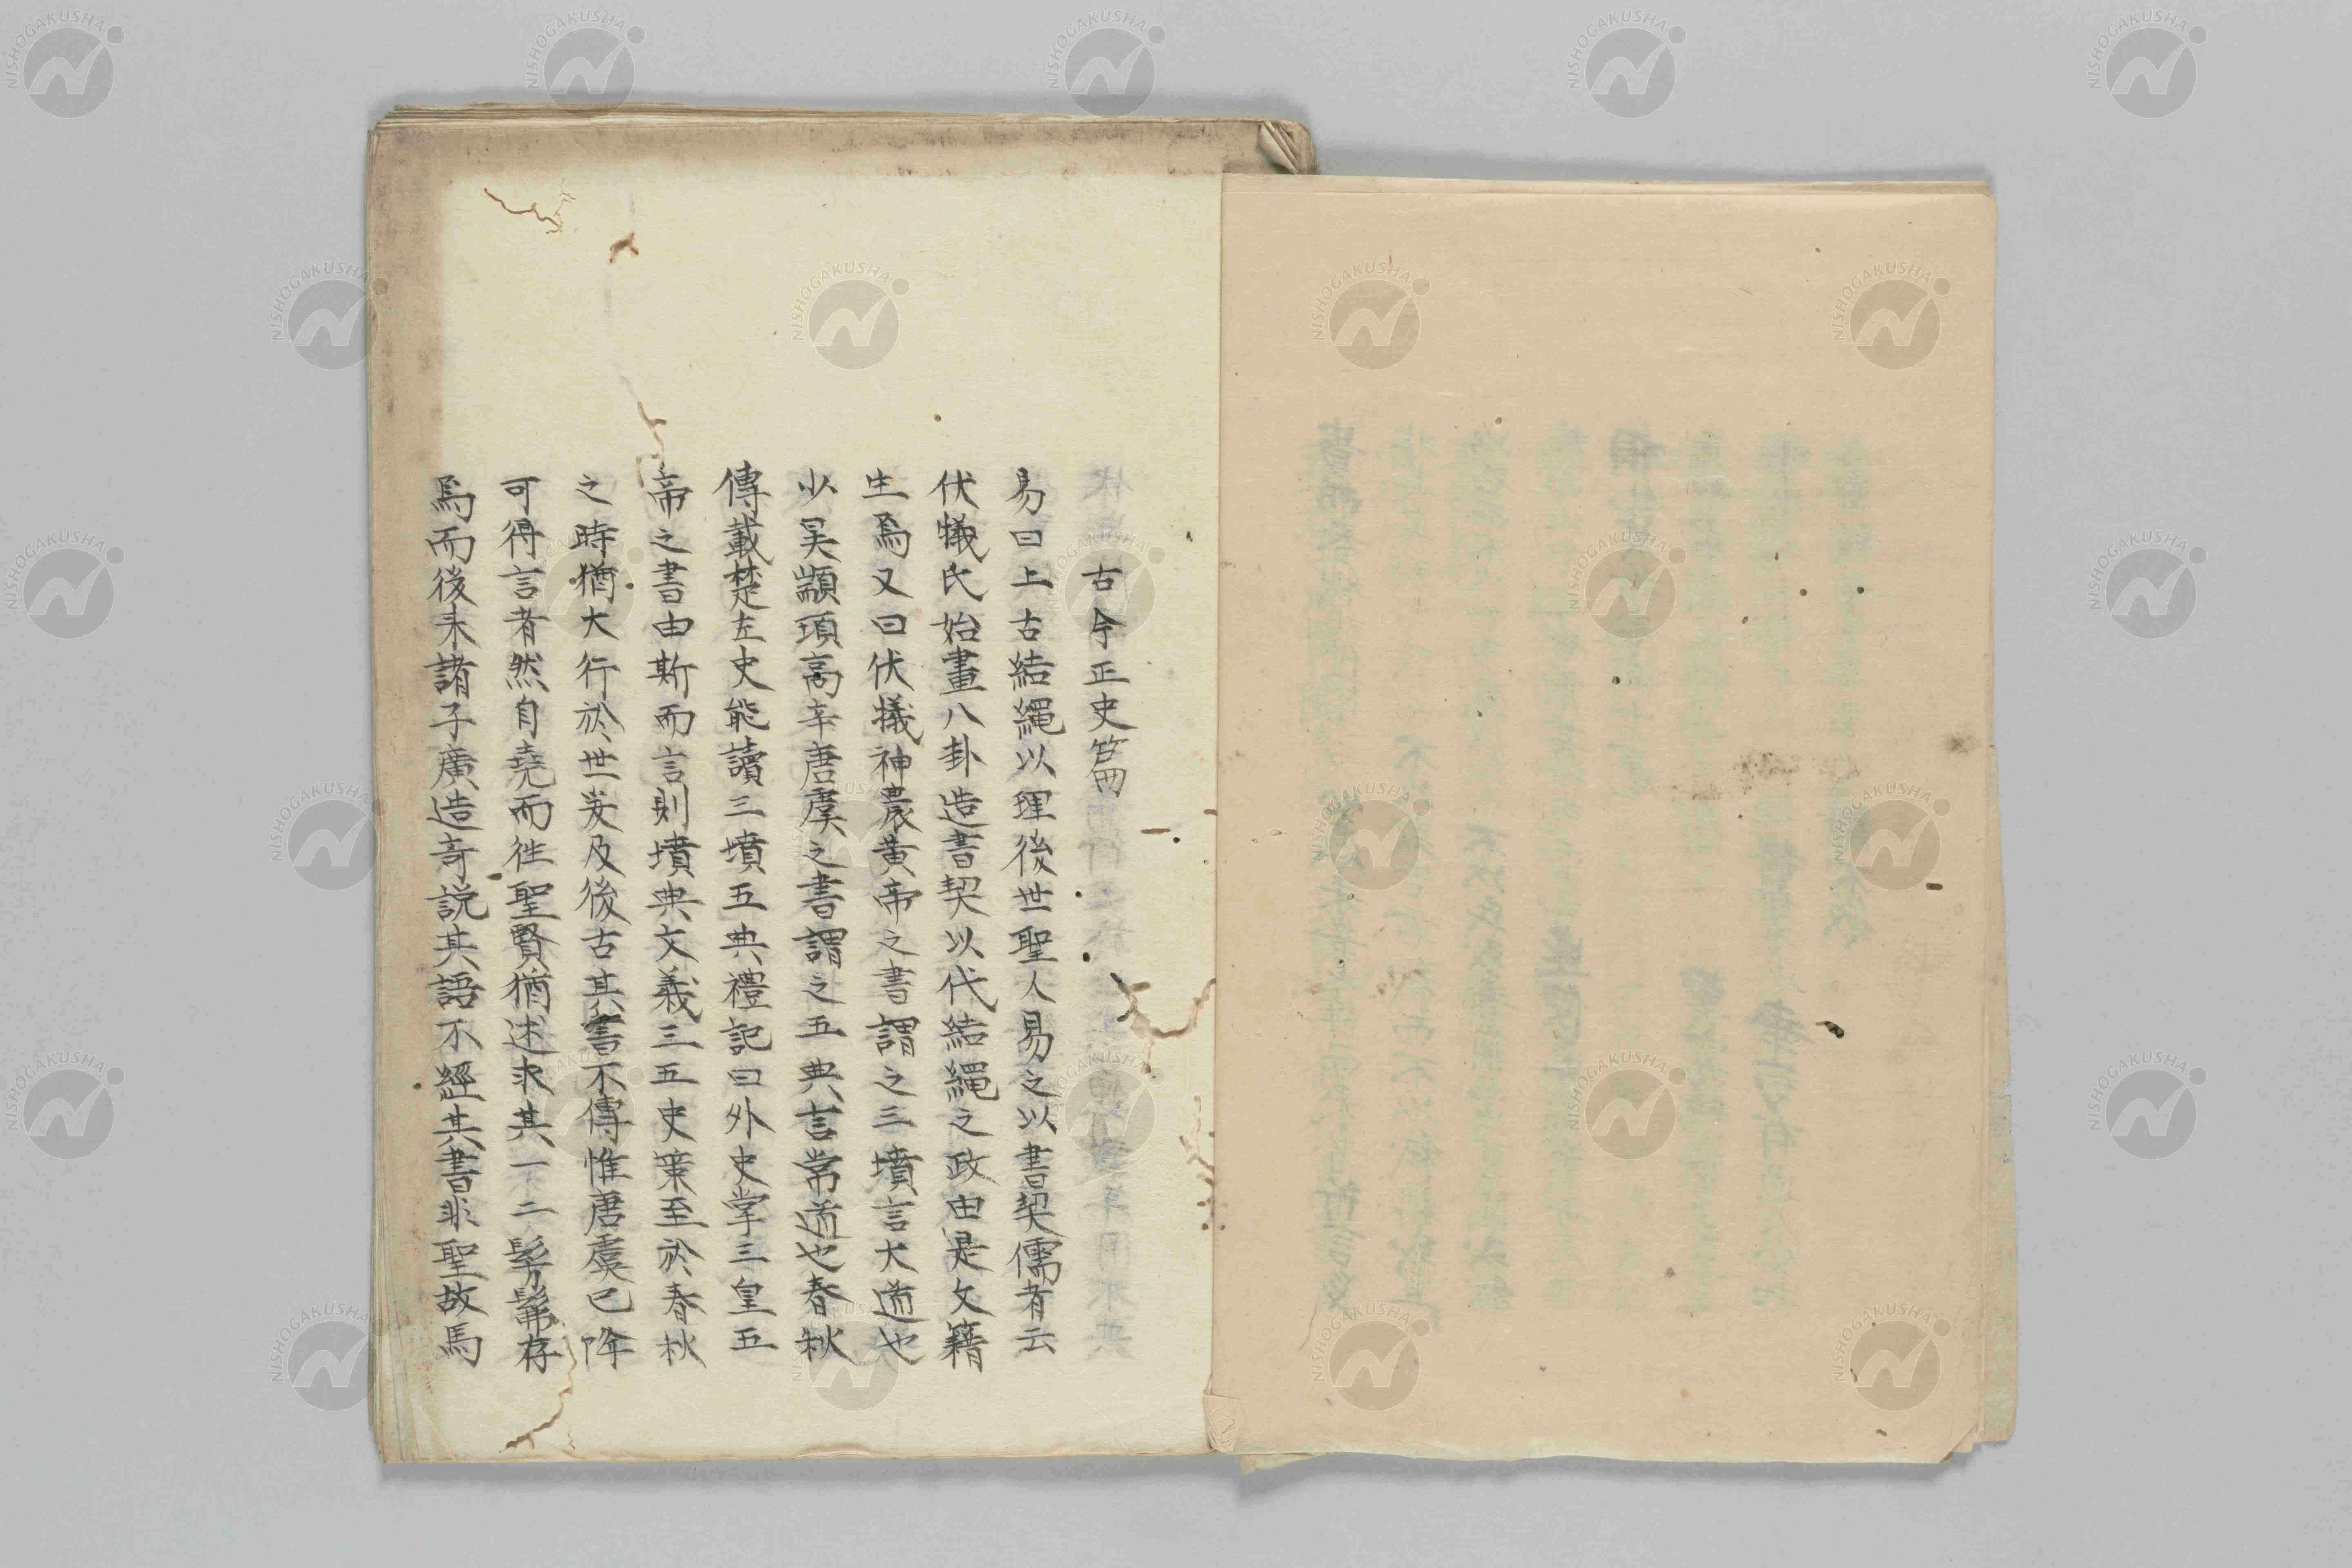 古今正史篇
易曰上古結繩以理後世聖人易之以書契儒者云
伏犧氏始畫八卦造書契以代結繩之政由是文籍
生焉又曰伏犧神農黄帝之書謂之三墳言大道也
少昊顓頊高辛唐虞之書謂之五典言常道也春秋
傳載楚左史能讀三墳五典禮記曰外史掌三皇五
帝之書由斯而言則墳典文義三五史策至於春秋
之時猶大行於世爰及後古其書不傳惟唐虞已降
可得言者然自堯而徃聖賢猶述求其一二髣髴存
焉而後来諸子廣造奇説其語不經其書非聖故馬
NISHOGAKUSHA